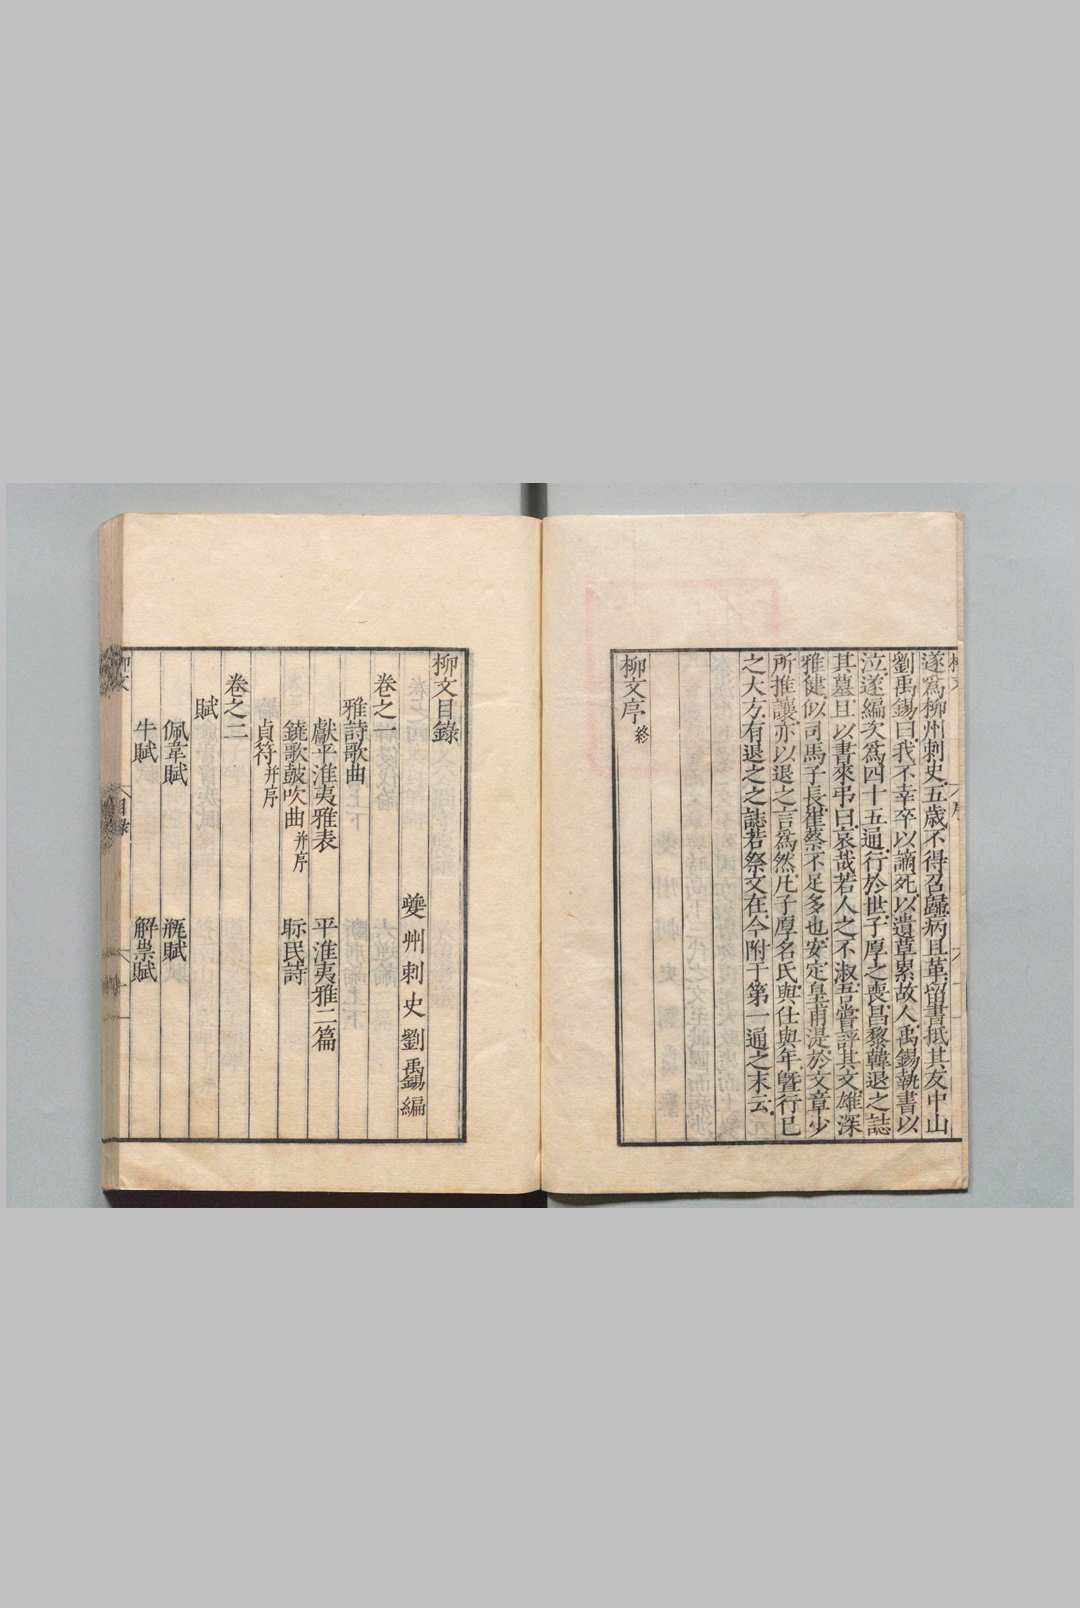 遂爲柳州刺史五歲不得召歸病且革留書抵其友中山
劉禹錫曰我不幸卒以謫死以遺草累故人禹錫執書以
泣遂編次爲四十五通行於世子厚之喪昌黎韓退之誌
其墓且以書來弔曰哀哉若人之不淑吾嘗評其文雄深
雅健似司馬子長崔蔡不足多也安定皇甫湜於文章少
所推讓亦以退之言爲然凡子厚名氏與仕與年曁行已
之大方有退之之誌若祭文在今附于第一通之末云
柳文序 終
柳文目錄
夔州刺史劉禹錫編
卷之一
雅詩歌曲
獻平淮夷雅表 平淮夷雅二篇
鐃歌鼓吹曲并序 眎民詩
貞符并序
卷之二
賦
佩韋賦 瓶賦
牛賦 解祟賦
柳文 目錄